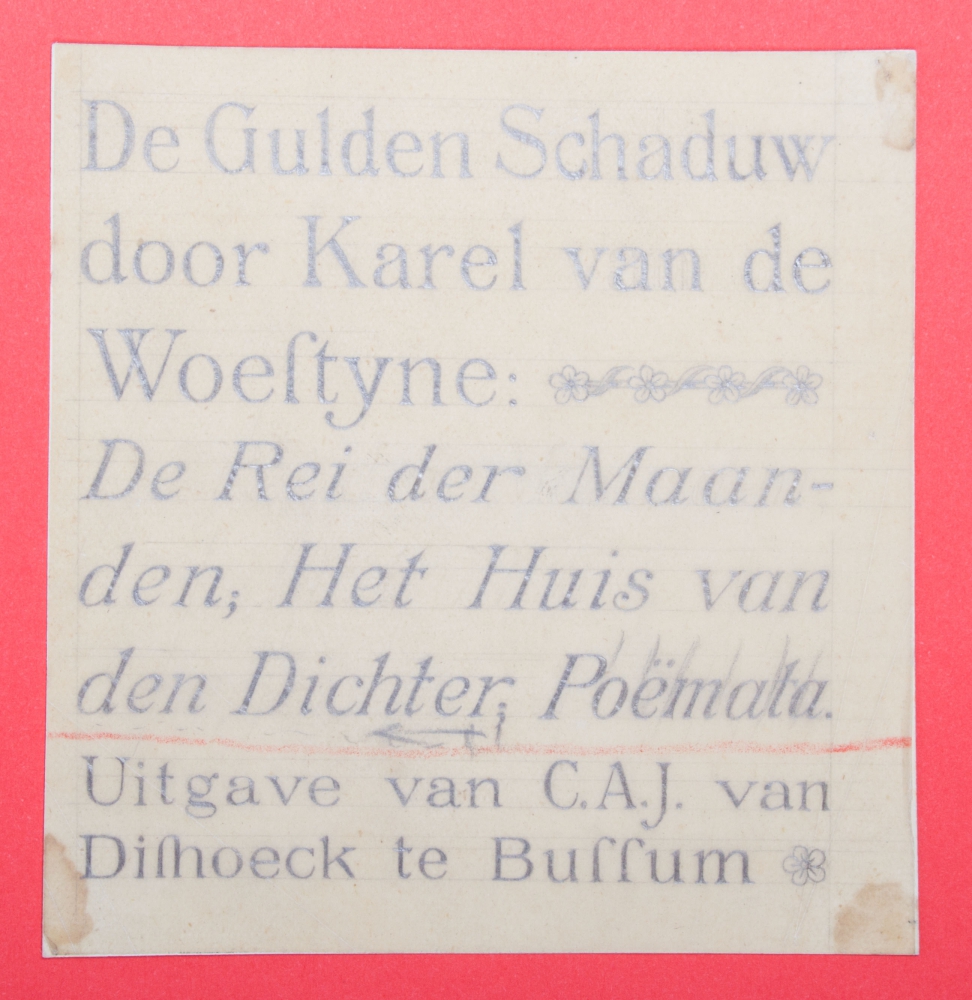 De Gulden Schaduw
door Karel van de
Woeſtyne:
De Rei der Maan-
den; Het Huis van
den Dichter; Poëmata.
Uitgave van C.A.J. van
Diſhoeck te Buſſum